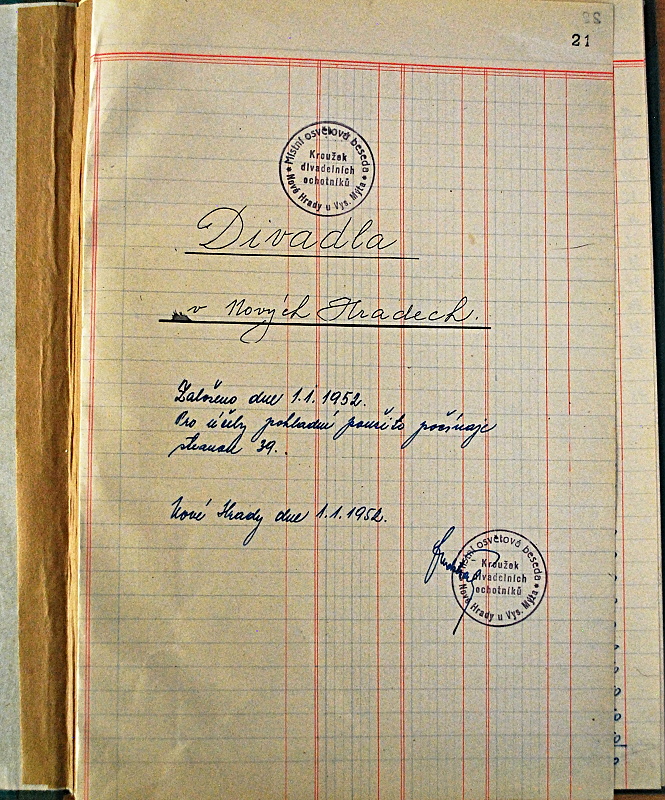 22
21
Místní osvětová beseda
Kroužek
divadelních
ochotníků
Nové Hrady u Vys. Mýta
Divadla
v Nových Hradech.
Založeno dne 1.1.1952.
Pro účely pokladní použito počínaje
stranou 39.
Nové Hrady dne 1.1.1952.
Místní osvětová beseda
Kroužek
divadelních
ochotníků
Nové Hrady u Vys. Mýta